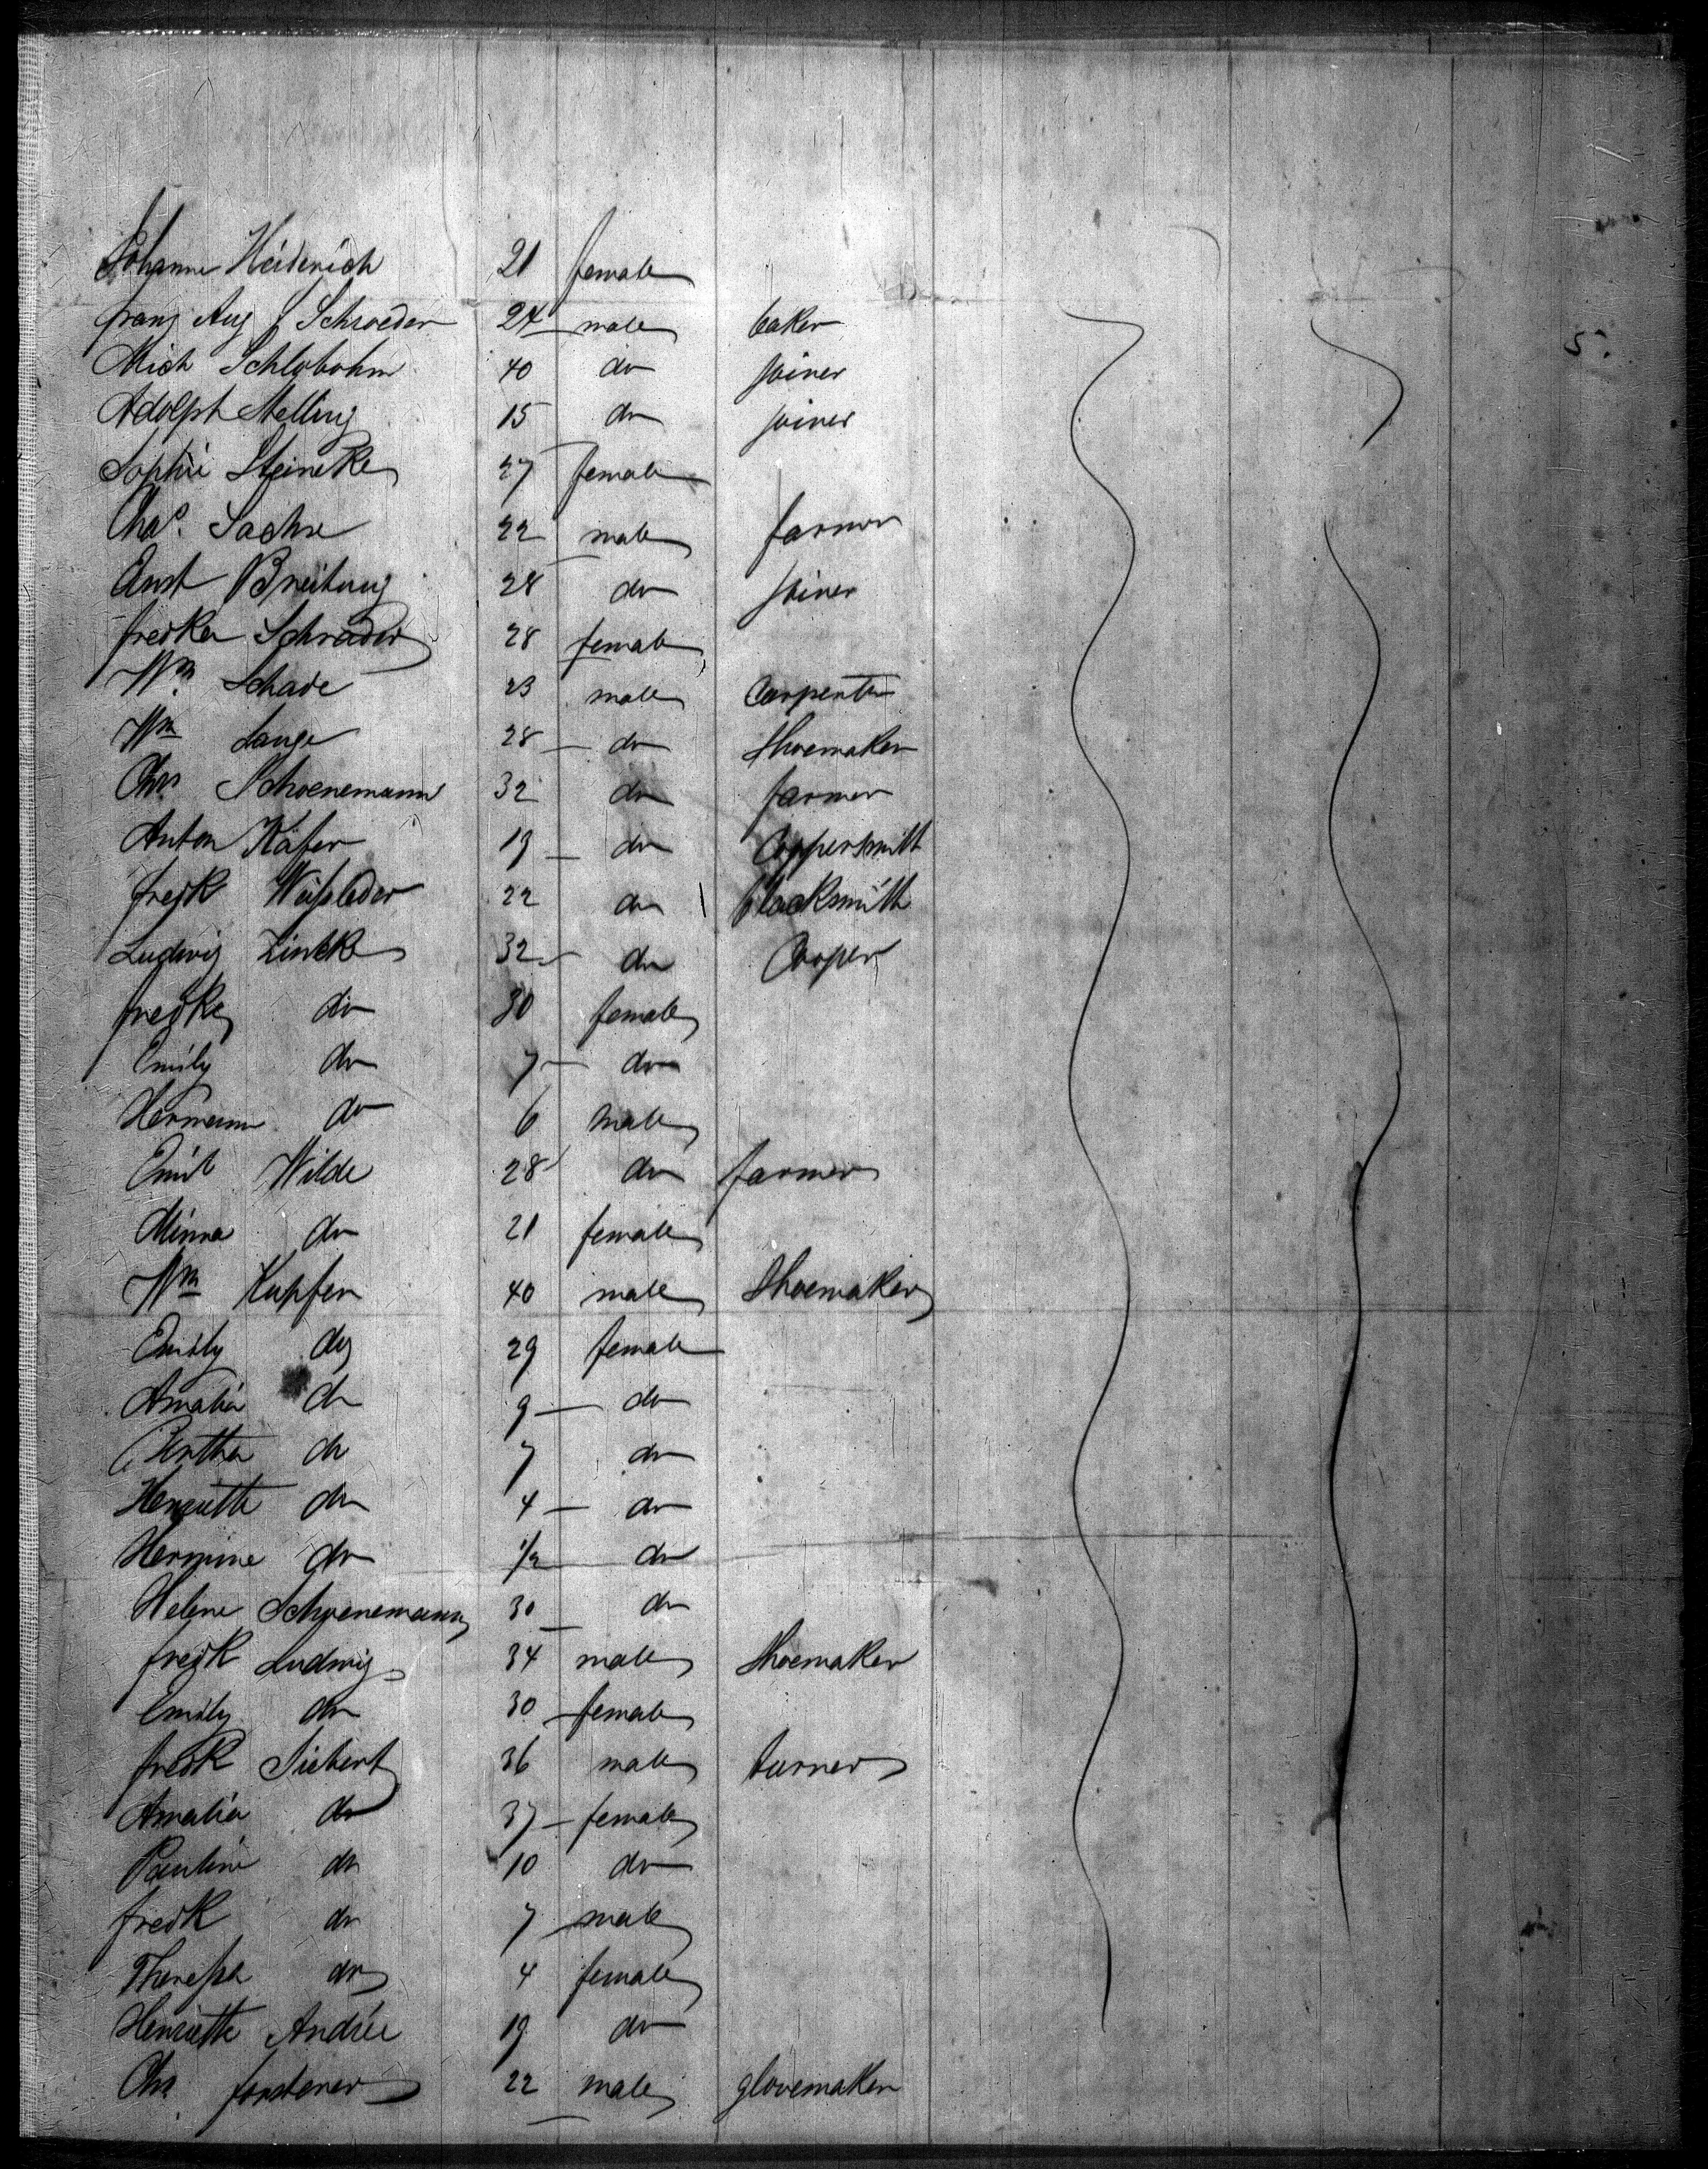 Johanne Heidenich 21 female
franz Aug Schroeder 24 male baker
Mich Schlobohm 40 do joiner
Adolph Melling 15 do joiner
Sophie Steineke 27 female
Chas. Sachse 22 male farmer
Ernst Breitung 28 do joiner
fredke Schrader 28 female
Wm Schade 23 male Carpenter
Wm Lange 28 do Shoemaker
Chr. Schoenemann 32 do farmer
Anton Käfer 19 do Coppersmith
fredk 22 do blacksmith
Ludwig Lincke 32 do Cooper
fredke do 30 female
Emily do 7 do
Hermann do 6 male
Emil Wilde 28 do farmer
Minna do 21 female
Wm Kupfer 40 male Shoemaker
Emily do 29 female
Amalia do 9 do
Bertha do 7 do
Henriette do 4 do
Hermine do 1/2 do
Helene Schoenemann 30 do
fredk Ludwig 34 male Shoemaker
Emily do 30 female
fredk Siebert 36 male turner
Amalia do 37 female
Pauline do 10 do
fredk do 7 male
Theressa do 4 female
Henriette Andrée 19 do
Chr. forstener 22 male glovemaker